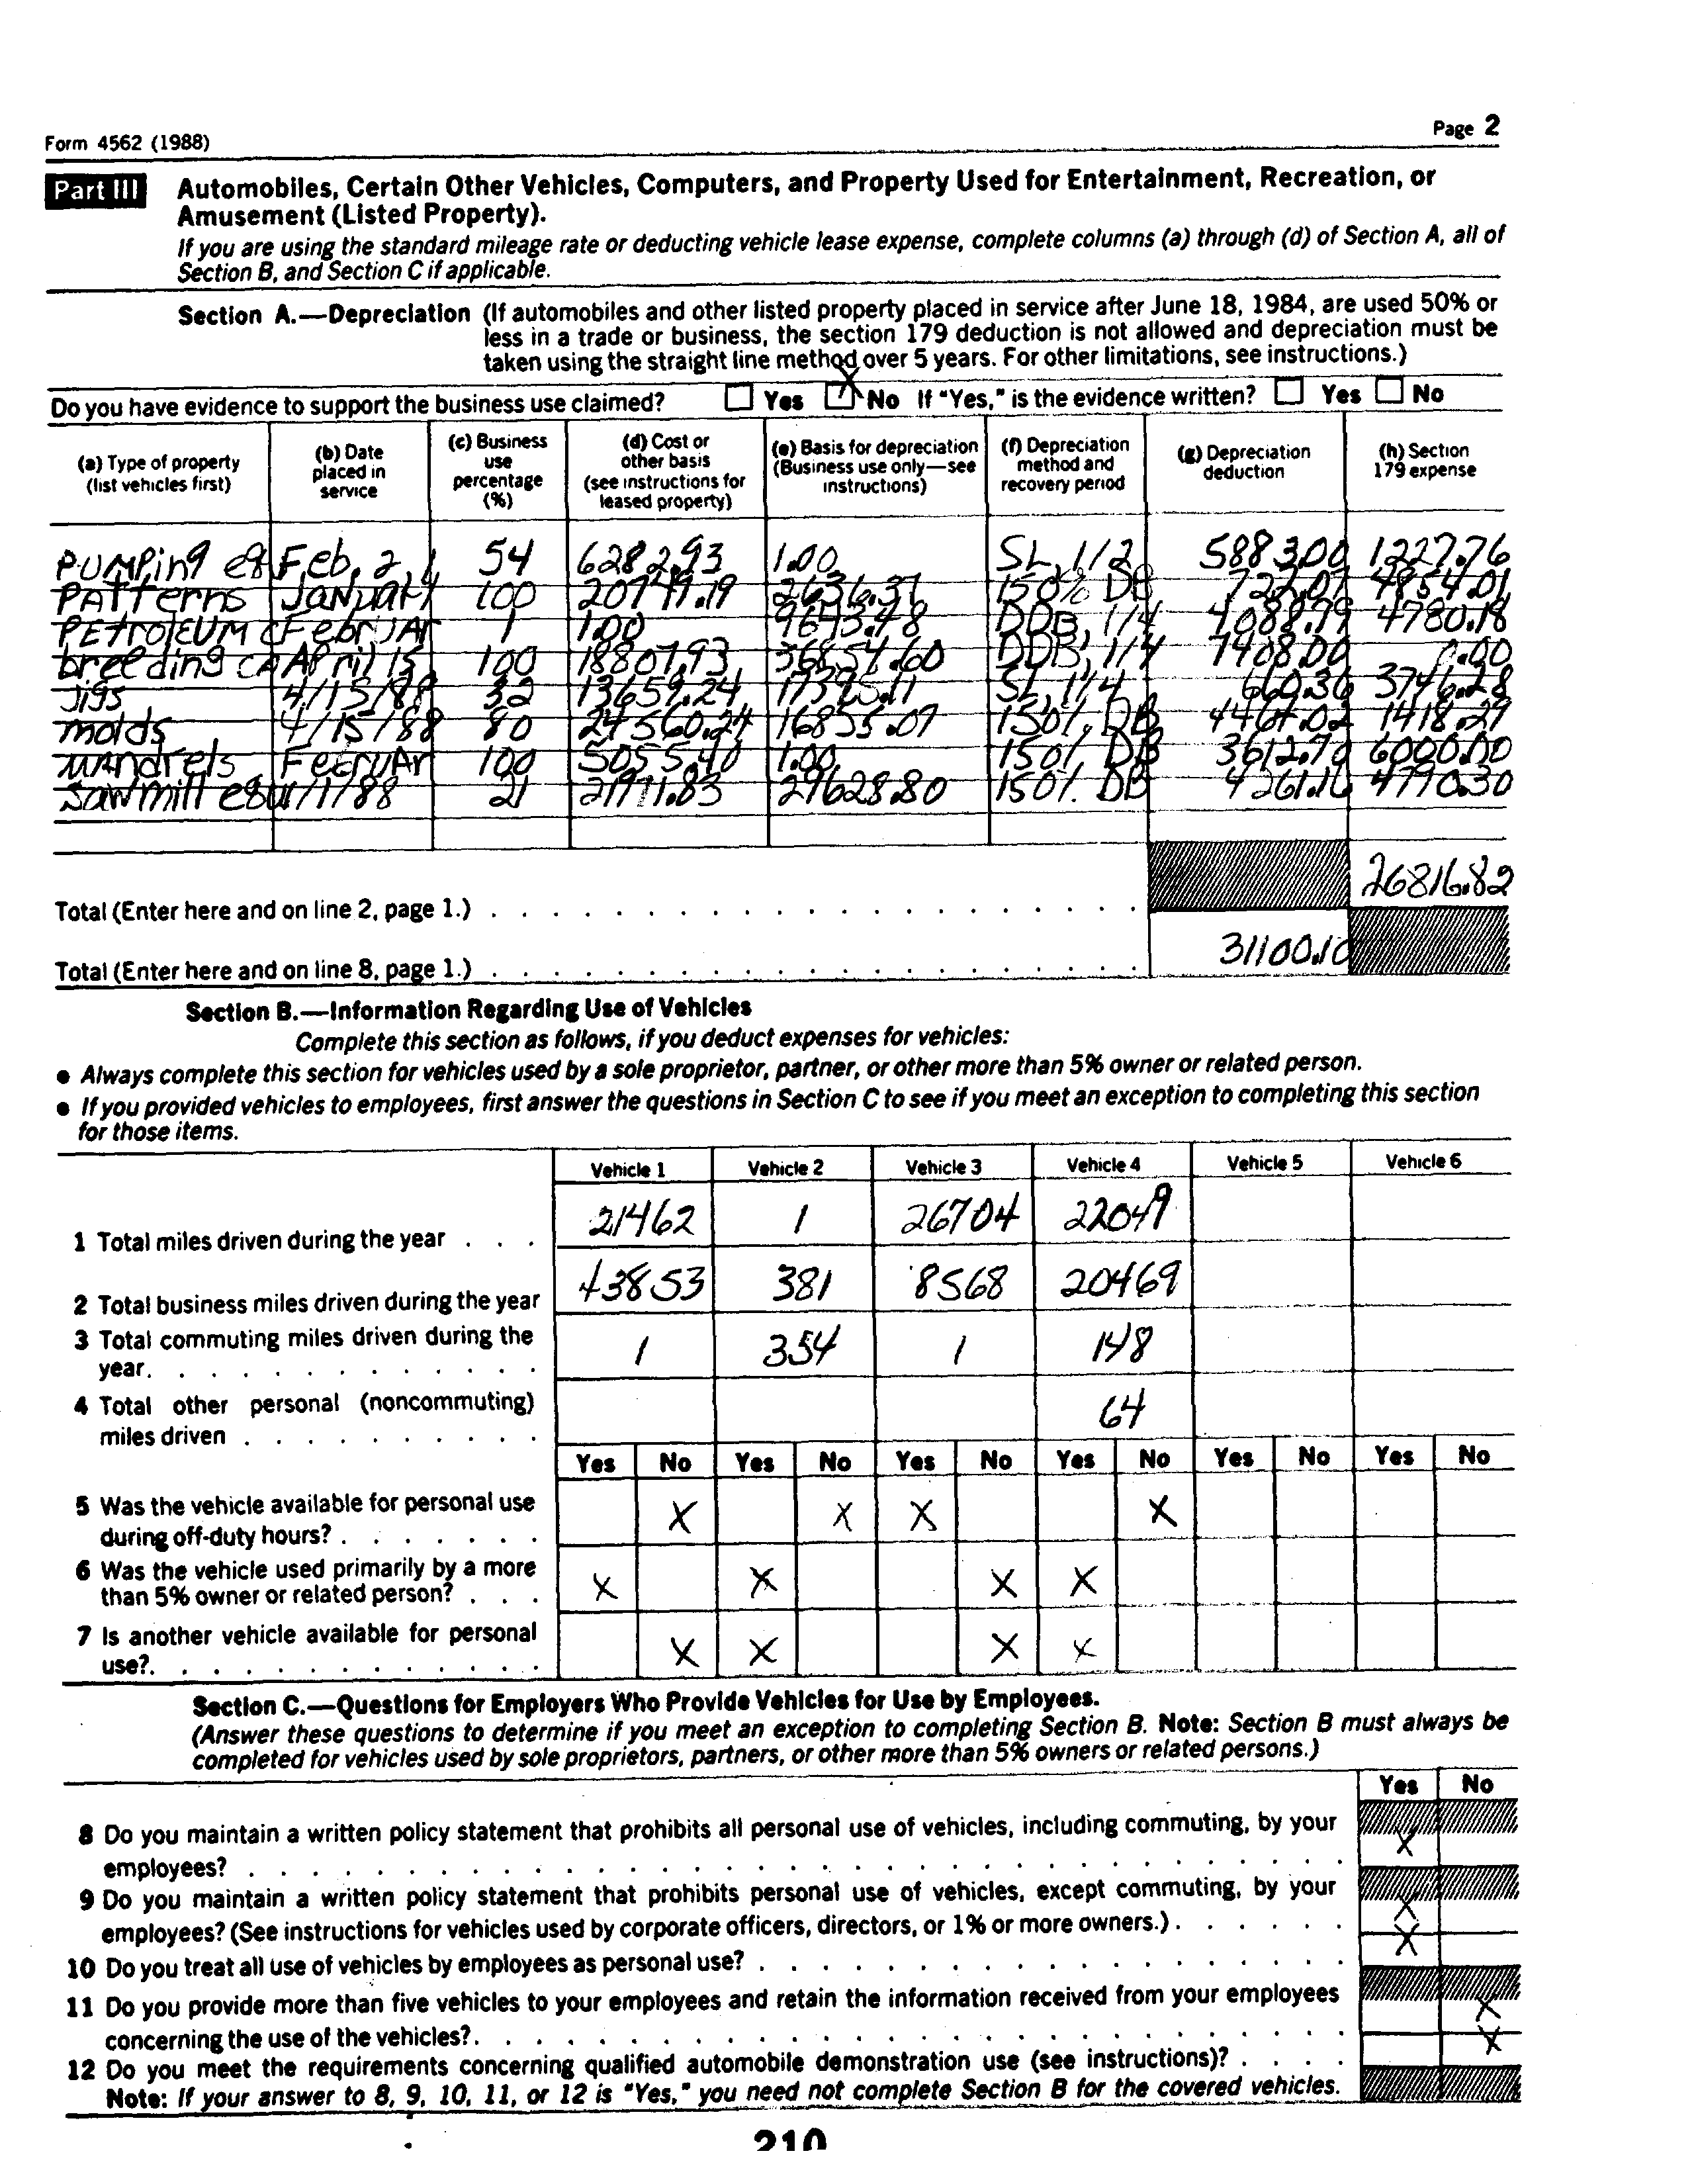 Form 4562 (1988)
Page 2
Part III Automobiles, Certain Other Vehicles, Computers, and Property Used for Entertainment, Recreation, or
Amusement (Listed Property).
If you are using the standard mileage rate or deducting vehicle lease expense, complete columns (a) through (d) of Section A, all of
Section B, and Section C if applicable.
Section A.—Depreciation (If automobiles and other listed property placed in service after June 18, 1984, are used 50% or
less in a trade or business, the section 179 deduction is not allowed and depreciation must be
taken using the straight line method over 5 years. For other limitations, see instructions.)
Do you have evidence to support the business use claimed? Yes X No If "Yes," is the evidence written? Yes No
(a) Type of property (list vehicles first) (b) Date placed in service (c) Business use percentage (%) (d) Cost or other basis (see instructions for leased property) (e) Basis for depreciation (Business use only—see instructions) (f) Depreciation method and recovery period (g) Depreciation deduction (h) Section 179 expense
PUMPing Feb. 2, 54 6282.93 1.00 SL, 1/2 5883.00 1227.76
PATTerns JANUARY 100 20749.19 2636.37 150% DB 722.07 4854.01
PETROLEUM FebrUAr 1 1.00 9643.48 DDB, 1/4 4088.79 4780.18
breeding cA April 15, 100 18807.93 36854.60 DDB, 1/4 7408.00 0.00
Jigs 4/15/88 32 13659.24 17395.11 SL, 1/4 660.36 3746.28
molds 4/15/88 80 24560.24 16855.07 150% DB 4464.02 1418.29
MANdrels FebruAr 100 5055.40 1.00 150% DB 3612.70 6000.00
sawmill 4/1/88 21 21971.83 29628.80 150% DB 4261.16 4790.30
26816.82
Total (Enter here and on line 2, page 1.)
31100.10
Total (Enter here and on line 8, page 1.)
Section B.—Information Regarding Use of Vehicles
Complete this section as follows, if you deduct expenses for vehicles:
● Always complete this section for vehicles used by a sole proprietor, partner, or other more than 5% owner or related person.
● If you provided vehicles to employees, first answer the questions in Section C to see if you meet an exception to completing this section
for those items.
Vehicle 1 Vehicle 2 Vehicle 3 Vehicle 4 Vehicle 5 Vehicle 6
1 Total miles driven during the year . . . 21462 1 26704 22049
2 Total business miles driven during the year 43853 381 8568 20469
3 Total commuting miles driven during the
year. 1 354 1 148
4 Total other personal (noncommuting)
miles driven 64
Yes No Yes No Yes No Yes No Yes No Yes No
5 Was the vehicle available for personal use
during off-duty hours? X X X X
6 Was the vehicle used primarily by a more
than 5% owner or related person? . . . X X X X
7 Is another vehicle available for personal
use?. X X X X
Section C.—Questions for Employers Who Provide Vehicles for Use by Employees.
(Answer these questions to determine if you meet an exception to completing Section B. Note: Section B must always be
completed for vehicles used by sole proprietors, partners, or other more than 5% owners or related persons.)
Yes No
8 Do you maintain a written policy statement that prohibits all personal use of vehicles, including commuting, by your
employees? X
9 Do you maintain a written policy statement that prohibits personal use of vehicles, except commuting, by your
employees? (See instructions for vehicles used by corporate officers, directors, or 1% or more owners.) X
10 Do you treat all use of vehicles by employees as personal use? X
11 Do you provide more than five vehicles to your employees and retain the information received from your employees
concerning the use of the vehicles? X
12 Do you meet the requirements concerning qualified automobile demonstration use (see instructions)? X
Note: If your answer to 8, 9, 10, 11, or 12 is "Yes," you need not complete Section B for the covered vehicles.
210